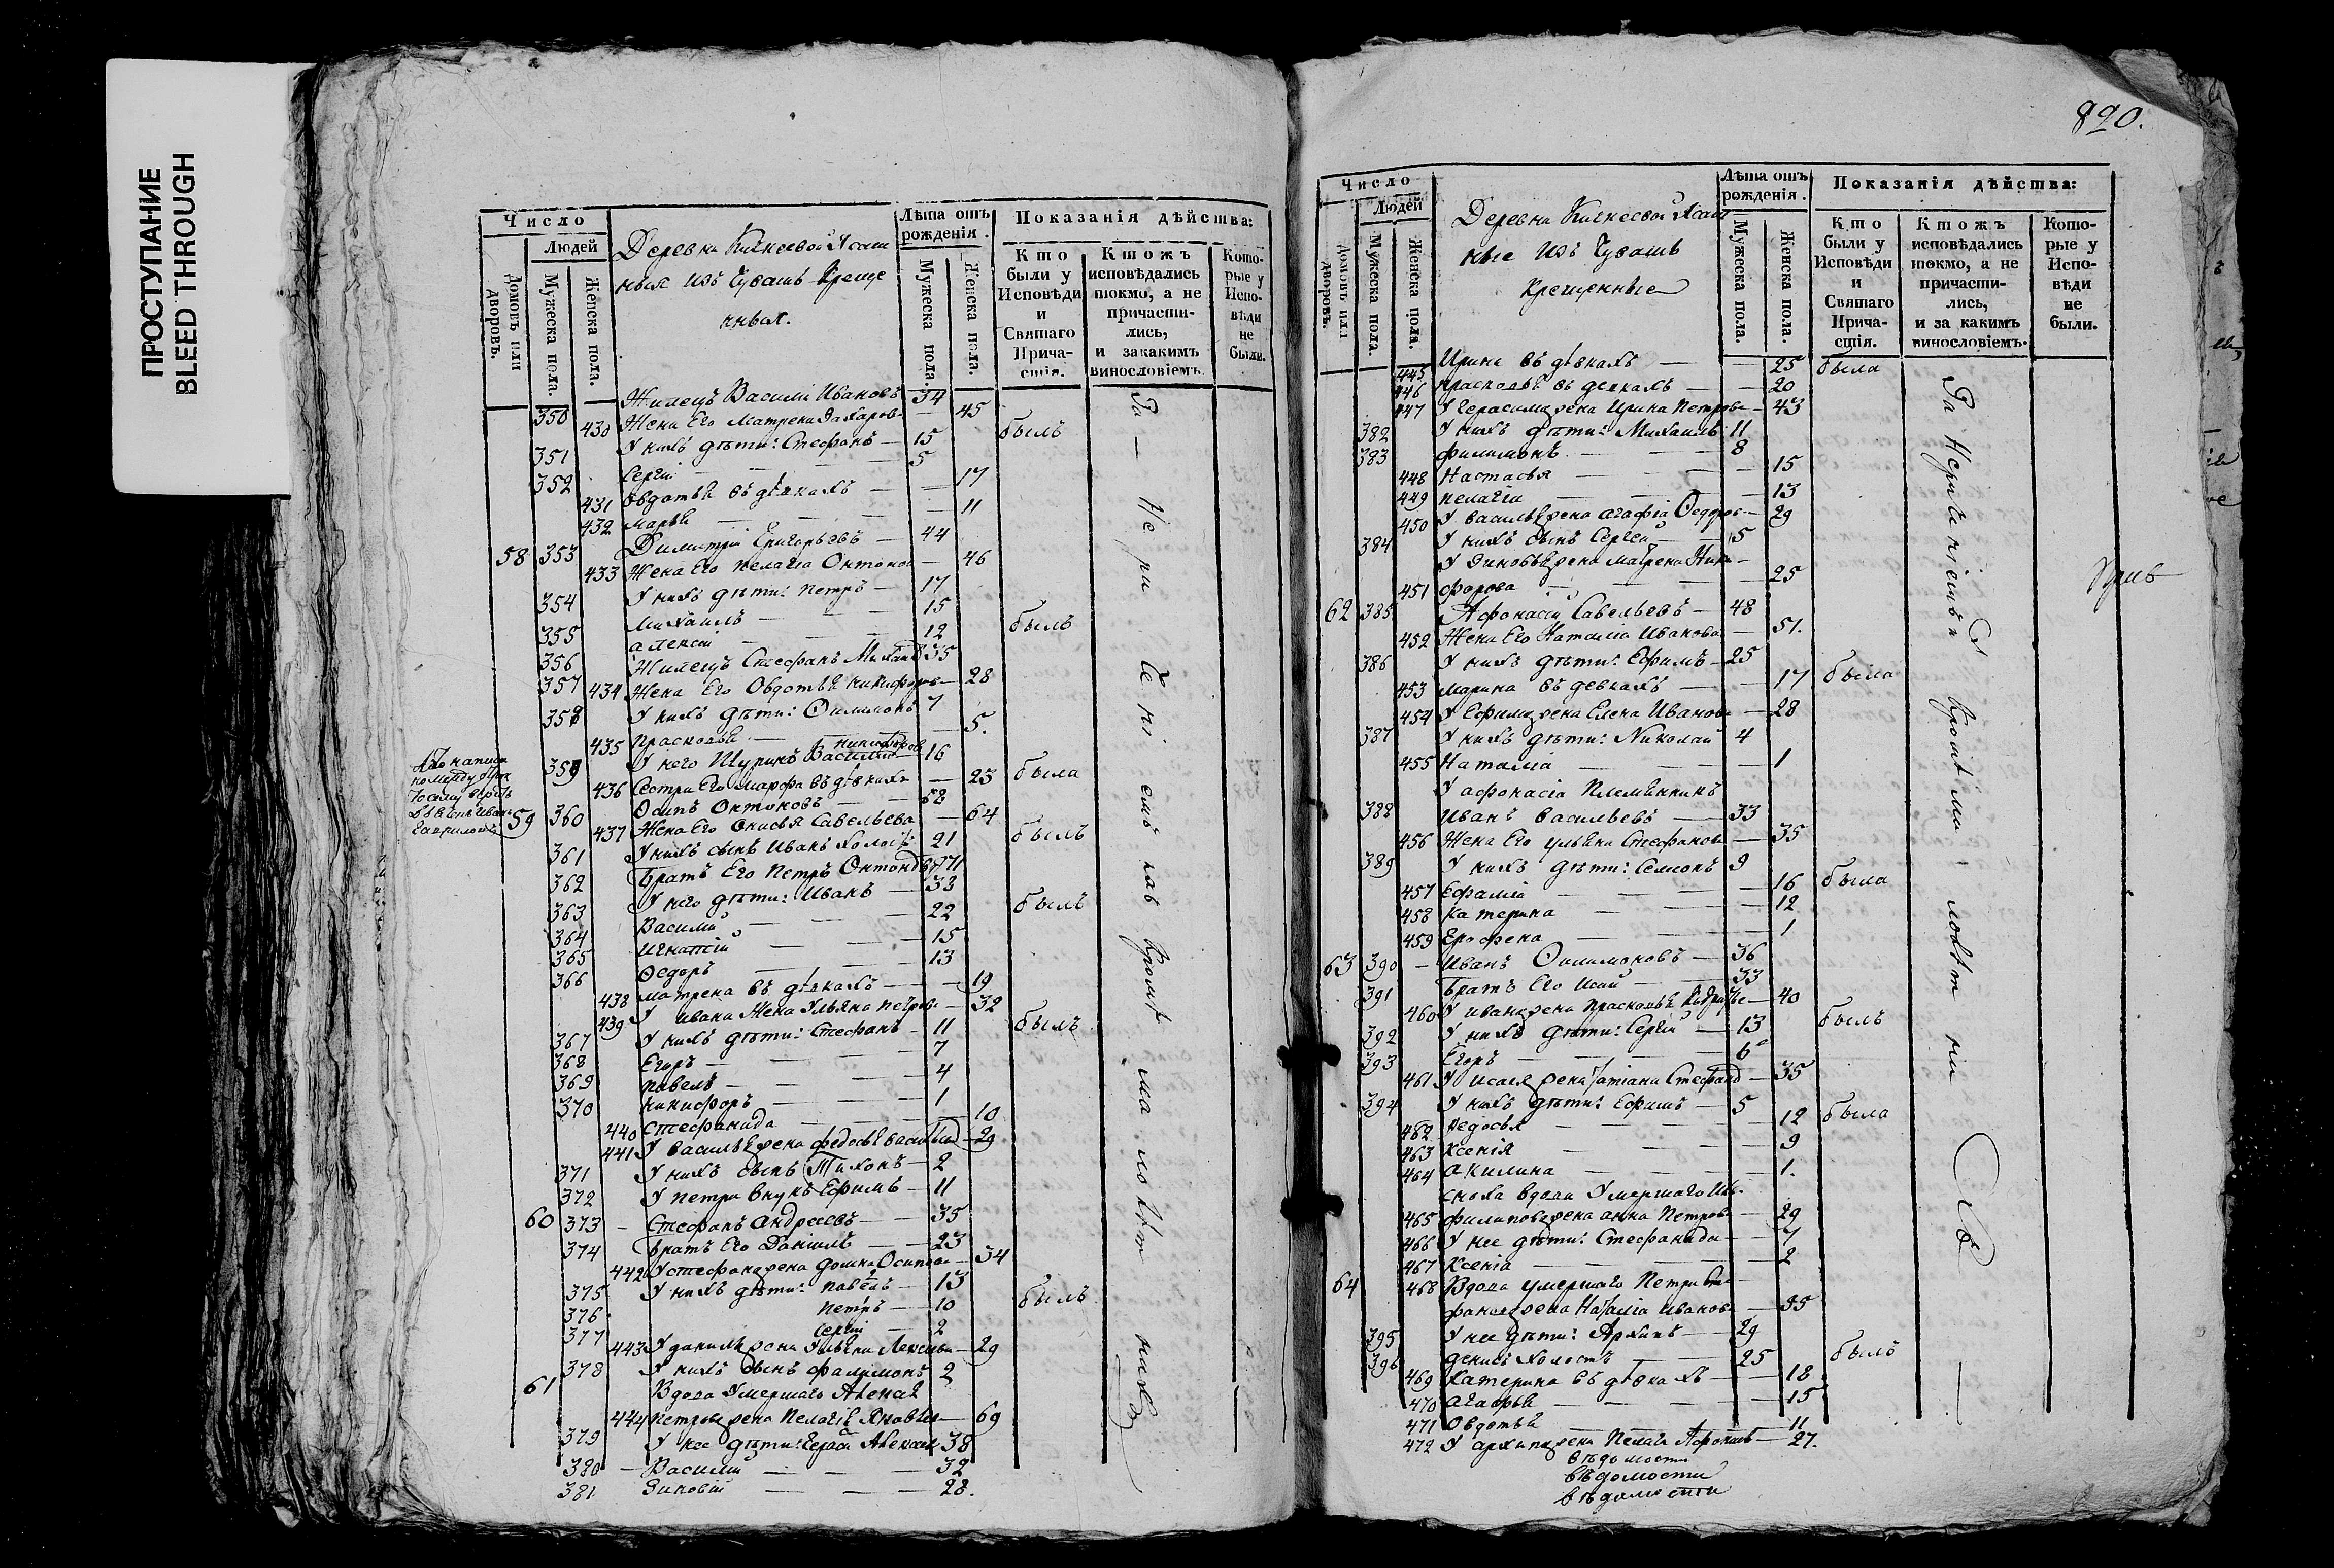 ПРОСТУПАНИЕ
BLEED THROUGH
Число
Людей
Домовъ или дворовъ.
Мужеска пола.
Женска пола.
Деревни
ныя изъ Чувашъ Креще
нныя.
Лѣта отъ рождения.
Мужеска пола.
Женска пола.
Показанія дѣйства:
Кто были у Исповѣди и Святаго Прича-стія.
Ктожъ исповѣдались токмо, а не причасти-лись, и закакимъ винословіемъ
Кото-рые у Испо-вѣди не были.
Жилецъ Василій Ивановъ 34
350 430 Жена Его Матрена Захаров — 45 былъ
351 У нихъ дѣти: Стефанъ — 15
352 Сергій — 5
431 Овдотья въ дѣвкахъ — 17
432 Марья — 11
58 353 Димитрій Григорьевъ — 44
433 Жена Его Пелагіа Онтонов — 46
354 У нихъ дѣти: Петръ — 17
355 Михаилъ — 15 былъ
356 алексій — 12
357 Жилецъ Стефанъ 35
434 Жена Его Овдотья никифоров — 28
358 У нихъ дѣти: Филимонъ 7
435 Прасковья — 5.
359 У него Шуринъ Василій никифоров 16
436 Сестра Его марфа въ дѣвкахъ — 23 была
59 360 Осипъ Онтоновъ — 58
437 Жена Его Онисья Савельева — 64
361 У нихъ сынъ Иванъ холостъ 21 былъ
362 Братъ Его Петръ Онтоновъ 71
363 У него дѣти: Иванъ — 33 былъ
364 Василій — 22
365 Игнатій — 15
366 Ѳедоръ — 13
438 матрена въ дѣвкахъ — 19
439 У ивана Жена Ульяна петрова — 32
367 У нихъ дѣти: Стефанъ — 11 былъ
368 Егоръ — 7
369 павелъ — 4
370 никифоръ — 1
440 Стефанида — 10
441 У василья жена федосья васильева — 29
371 У нихъ сынъ Тихонъ — 2
372 У петра внукъ Ефимъ — 11
60 373 — Стефанъ андреевъ — 35
374 братъ Его Даніилъ — 23
442 У стефана жена домна Осипова — 34
375 У нихъ дѣти: павелъ — 13
376 петръ — 10 былъ
377 сергій — 2
443 У данила жена Ульяна — 29
378 У нихъ сынъ филимонъ 2
61 Вдова Умершаго
444 петрова жена Пелагія — 69
379 У нее дѣти: 38
380 — Василий — 32
381 Зиновій — 28.
890.
Число
Людей
Домовъ или дворовъ.
Мужеска пола.
Женска пола.
Деревни
ные изъ Чувашъ
Крещенные
Лѣта отъ рожденія.
Мужеска пола.
Женска пола.
Показанія дѣйства:
Кто были у Исповѣди и Святаго Прича-стія.
Ктожъ исповѣдались токмо, а не причасти-лись, и за какимъ винословіемъ.
Кото-рые у Испо-вѣди не были.
445 Ирина въ дѣвкахъ — 25 была
446 прасковья въ девкахъ — 20
447 У герасима жена Ирина Петрова — 43
382 У нихъ дѣти: Михаилъ 11
383 филимонъ — 8
448 Настасья — 15
449 пелагіа — 13
450 У василья жена агафіа Федоров — 29
384 У нихъ сынъ Сергей — 5
У Зиновья жена Матрена Ники-
451 форова — 25
62 385 Афонасій Савельевъ — 48
452 Жена Его Наталіа Иванова — 51.
386 У нихъ дѣти: Ефимъ — 25
453 марина въ девкахъ — 17 была
454 У Ефима жена Елена Иванова — 28
387 У нихъ дѣти: Николай 4
455 Наталіа — 1
У афонасіа Племянникъ
388 Иванъ васильевъ — 33
456 Жена Его ульяна Стефанова — 35
389 У нихъ дѣти: Семионъ 9
457 Ефимія — 16 была
458 катерина — 12
459 Ерофена — 1
63 390 — Иванъ Филимоновъ — 36
391 Братъ Его Исай — 33
460 У ивана жена прасковья — 40
392 У нихъ дѣти: Сергій — 13 былъ
393 Егоръ — 6
461 У исаія жена Татіана Стефанова — 35
394 У нихъ дѣти: Ефимъ — 5
462 Федосья — 12 была
463 Ксенія — 9
464 акилина — 1.
сноха вдова Умершаго
465 филипова жена анна Петрова — 29
466 У нее дѣти: Стефанида — 7
467 Ксеніа — 2
64 468 Вдова умершаго Петра Сте-
фанова жена Наталіа иванова — 55
395 У нее дѣти: Архипъ — 29
396 денисъ холостъ — 25 былъ
469 Катерина въ дѣвкахъ — 18
470 агафья — 15
471 Овдотья — 11
472 У архипа жена Пелагіа — 27.
вѣдомости
вѣдомости
вѣдомости